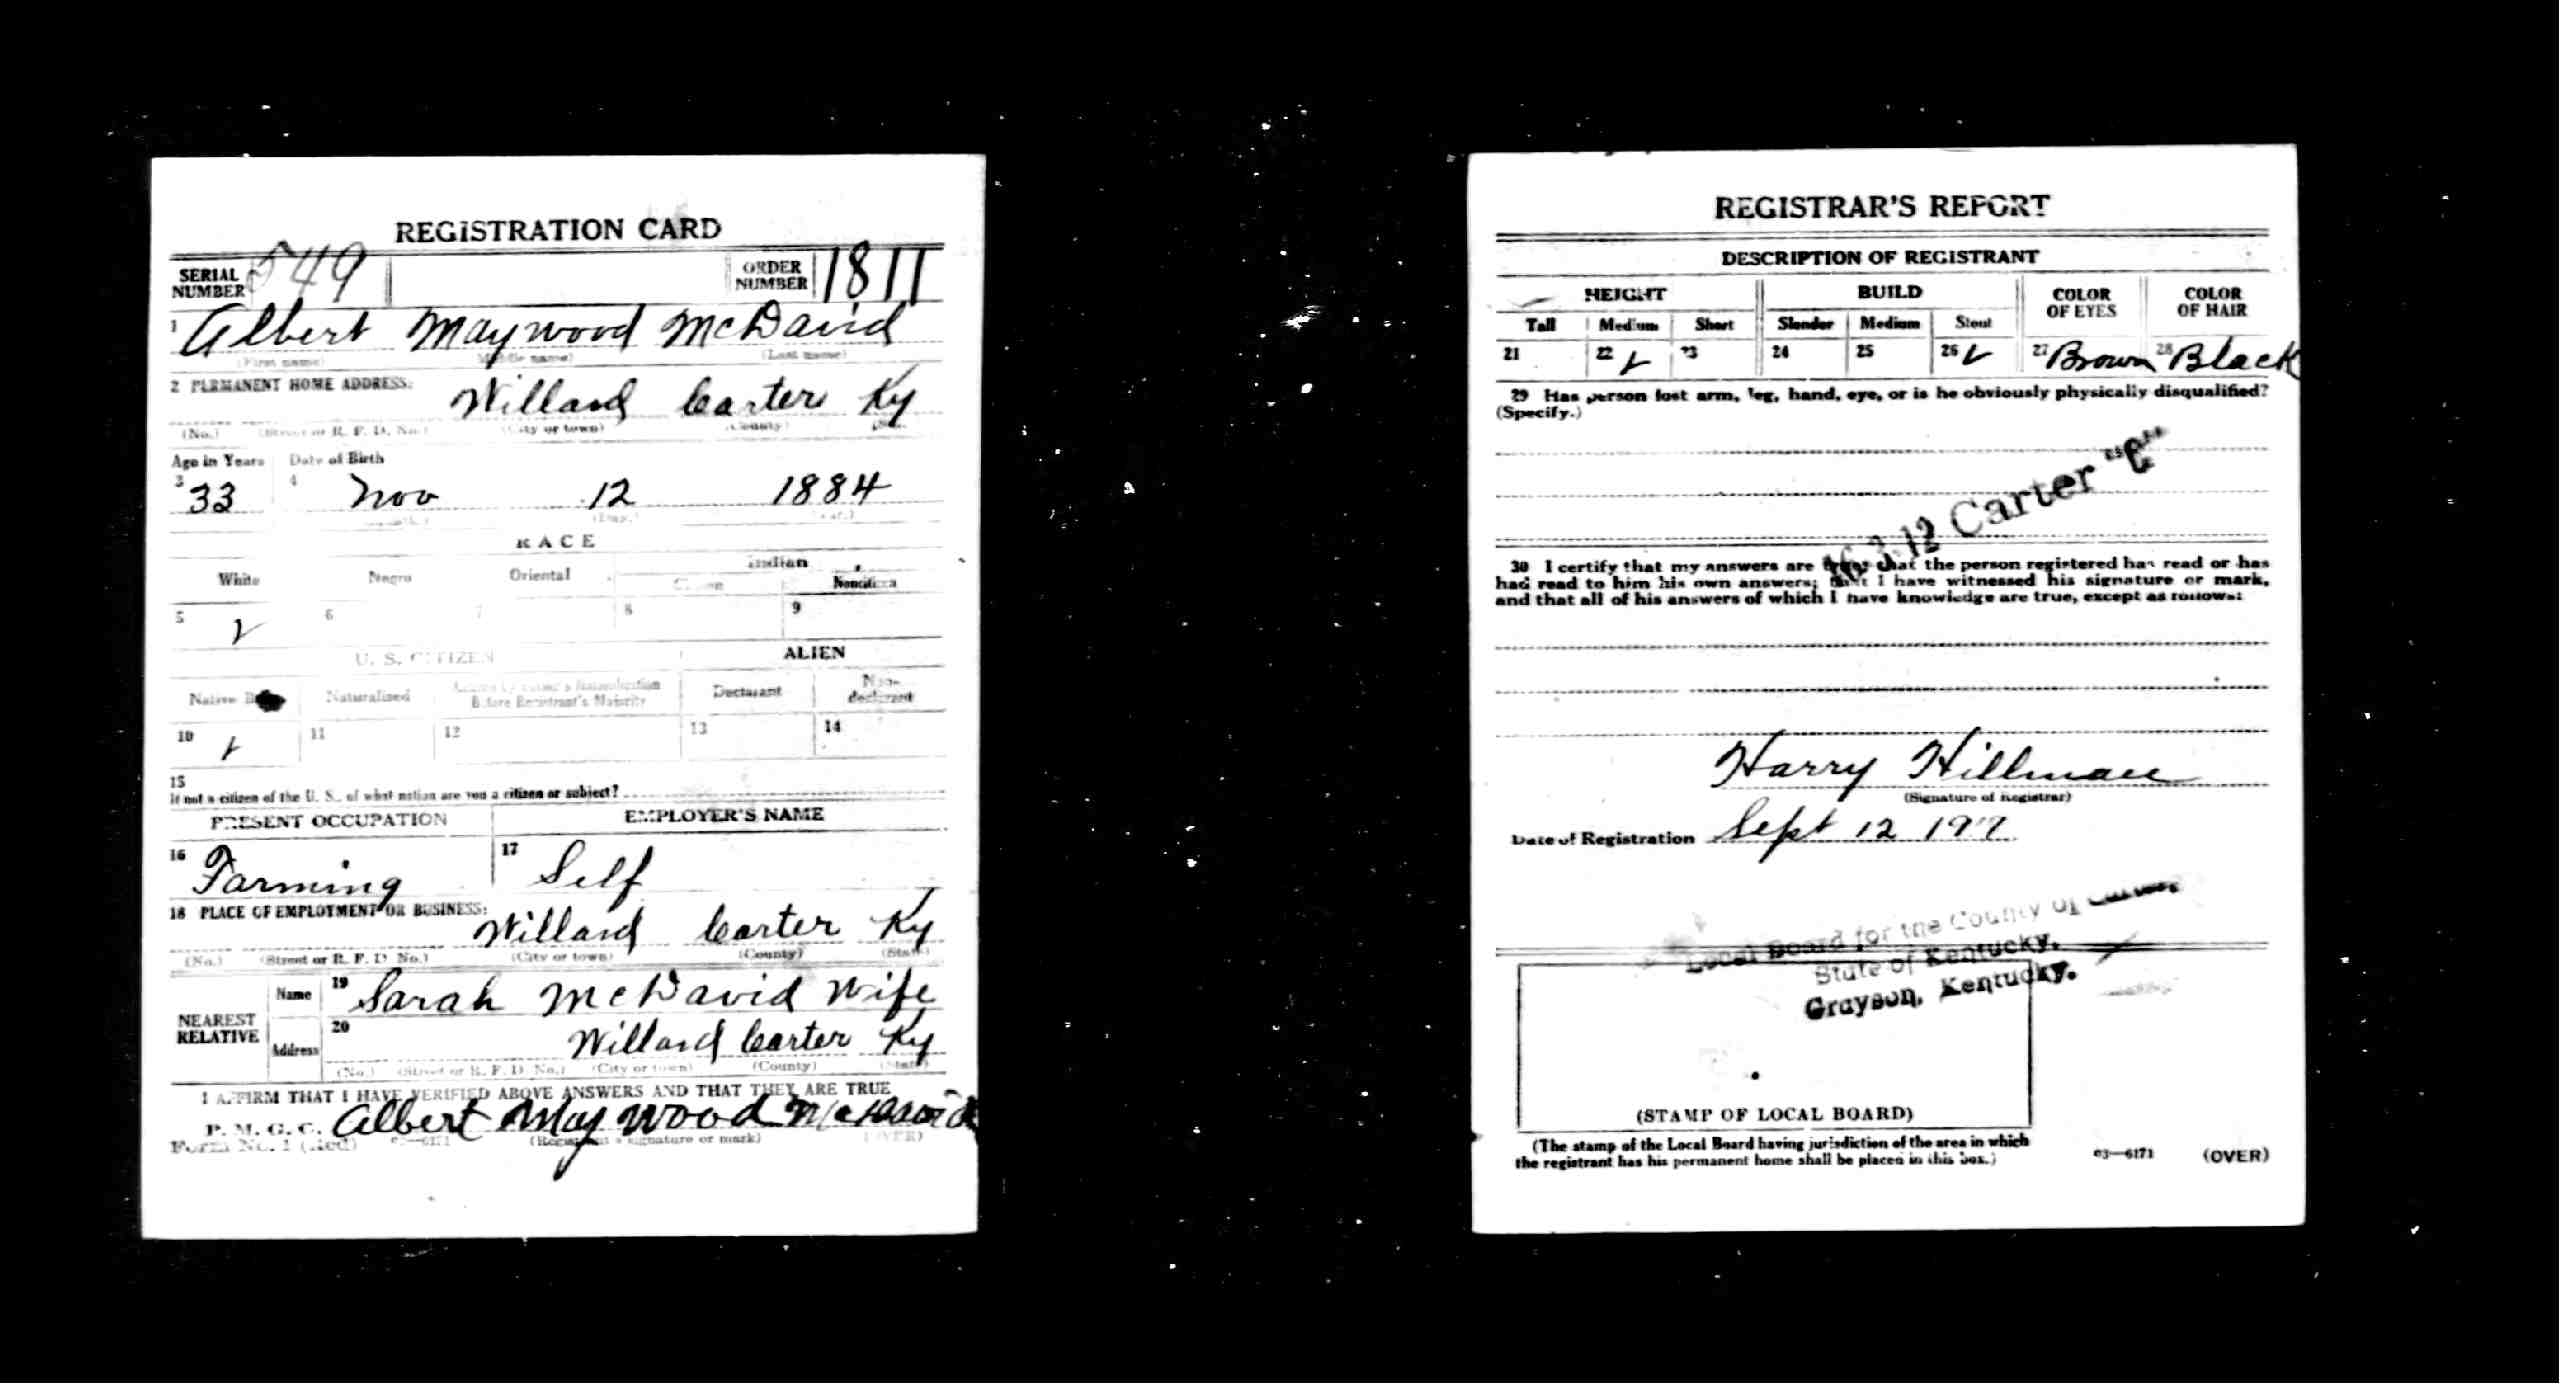 REGISTRATION CARD
SERIAL NUMBER 549 ORDER NUMBER 1811
1 Albert Maywood McDavid
(First name) (Middle name) (Last name)
2 PERMANENT HOME ADDRESS:
Willard Carter Ky
(No.) (Street or R. F. D. No.) (City or town) (County)
Age in Years Date of Birth
3 33 4 Nov 12 1884
(Day.)
RACE
White Negro Oriental Indian
Citizen Noncitizen
5 ✓ 6 7 8 9
U. S. CITIZEN ALIEN
Native Naturalized Before Registrant's Majority Declarant Non-declarant
10 ✓ 11 12 13 14
15
If not a citizen of the U. S., of what nation are you a citizen or subject?
PRESENT OCCUPATION EMPLOYER'S NAME
16 Farming 17 Self
18 PLACE OF EMPLOYMENT OR BUSINESS:
Willard Carter Ky
(No.) (Street or R. F. D. No.) (City or town) (County) (State)
NEAREST RELATIVE Name 19 Sarah McDavid Wife
Address 20 Willard Carter Ky
(No.) (Street or R. F. D. No.) (City or town) (County) (State)
I AFFIRM THAT I HAVE VERIFIED ABOVE ANSWERS AND THAT THEY ARE TRUE
P. M. G. O. Albert May wood McDavid
Form No. 1 (Red) (Registrant's signature or mark) (OVER)
REGISTRAR'S REPORT
DESCRIPTION OF REGISTRANT
HEIGHT BUILD COLOR OF EYES COLOR OF HAIR
Tall Medium Short Slender Medium Stout
21 22 ✓ 23 24 25 26 ✓ 27 Brown 28 Black
29 Has person lost arm, leg, hand, eye, or is he obviously physically disqualified?
(Specify.)
16-3-12 Carter "C"
30 I certify that my answers are true; that the person registered has read or has
had read to him his own answers; that I have witnessed his signature or mark,
and that all of his answers of which I have knowledge are true, except as follows:
Harry Hillman
(Signature of Registrar)
Date of Registration Sept 12
Local Board for the County of
State of Kentucky.
Grayson, Kentucky.
(STAMP OF LOCAL BOARD)
(The stamp of the Local Board having jurisdiction of the area in which
the registrant has his permanent home shall be placed in this box.)
03—6171 (OVER)